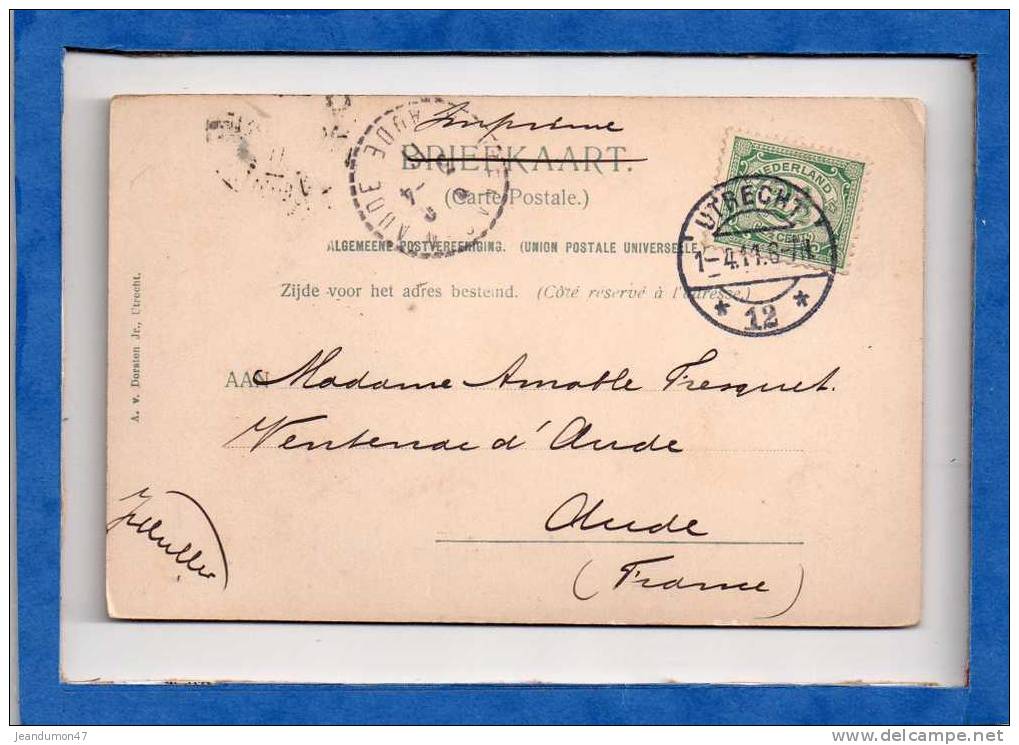 Imprimé
BRIEFKAART.
(Carte Postale.)
ALGEMEENE POSTVEREENIGING. (UNION POSTALE UNIVERSELLE.)
Zijde voor het adres bestemd. (Côté réservé à l'adresse.)
NEDERLAND
CENT
UTRECHT
1-4.11.6-7N
* 12 *
AUDE
AUDE
A. v. Dorsten Jr., Utrecht.
AAN Madame Amable Fresquet.
Ventenac d'Aude
Aude
(France)
jeandumon47
www.delcampe.net